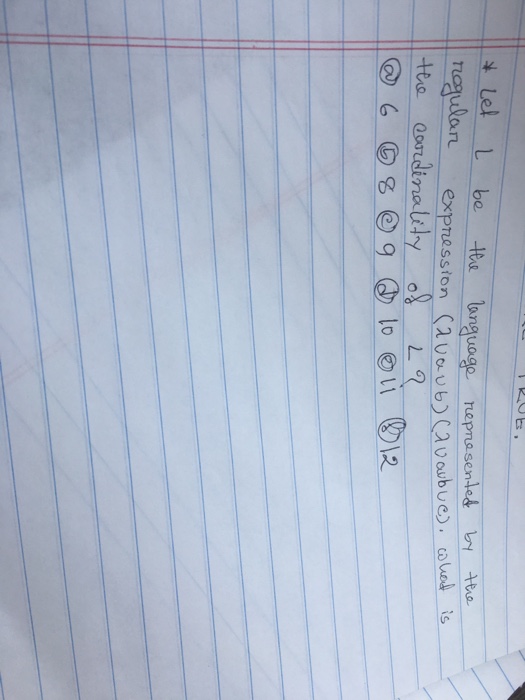 TRUE.
* Let L be the language represented by the
regular expression (λ∪a∪b)(λ∪a∪b∪c). what is
the cardinality of L?
ⓐ 6 ⓑ 8 ⓒ 9 ⓓ 10 ⓔ 11 ⓕ 12